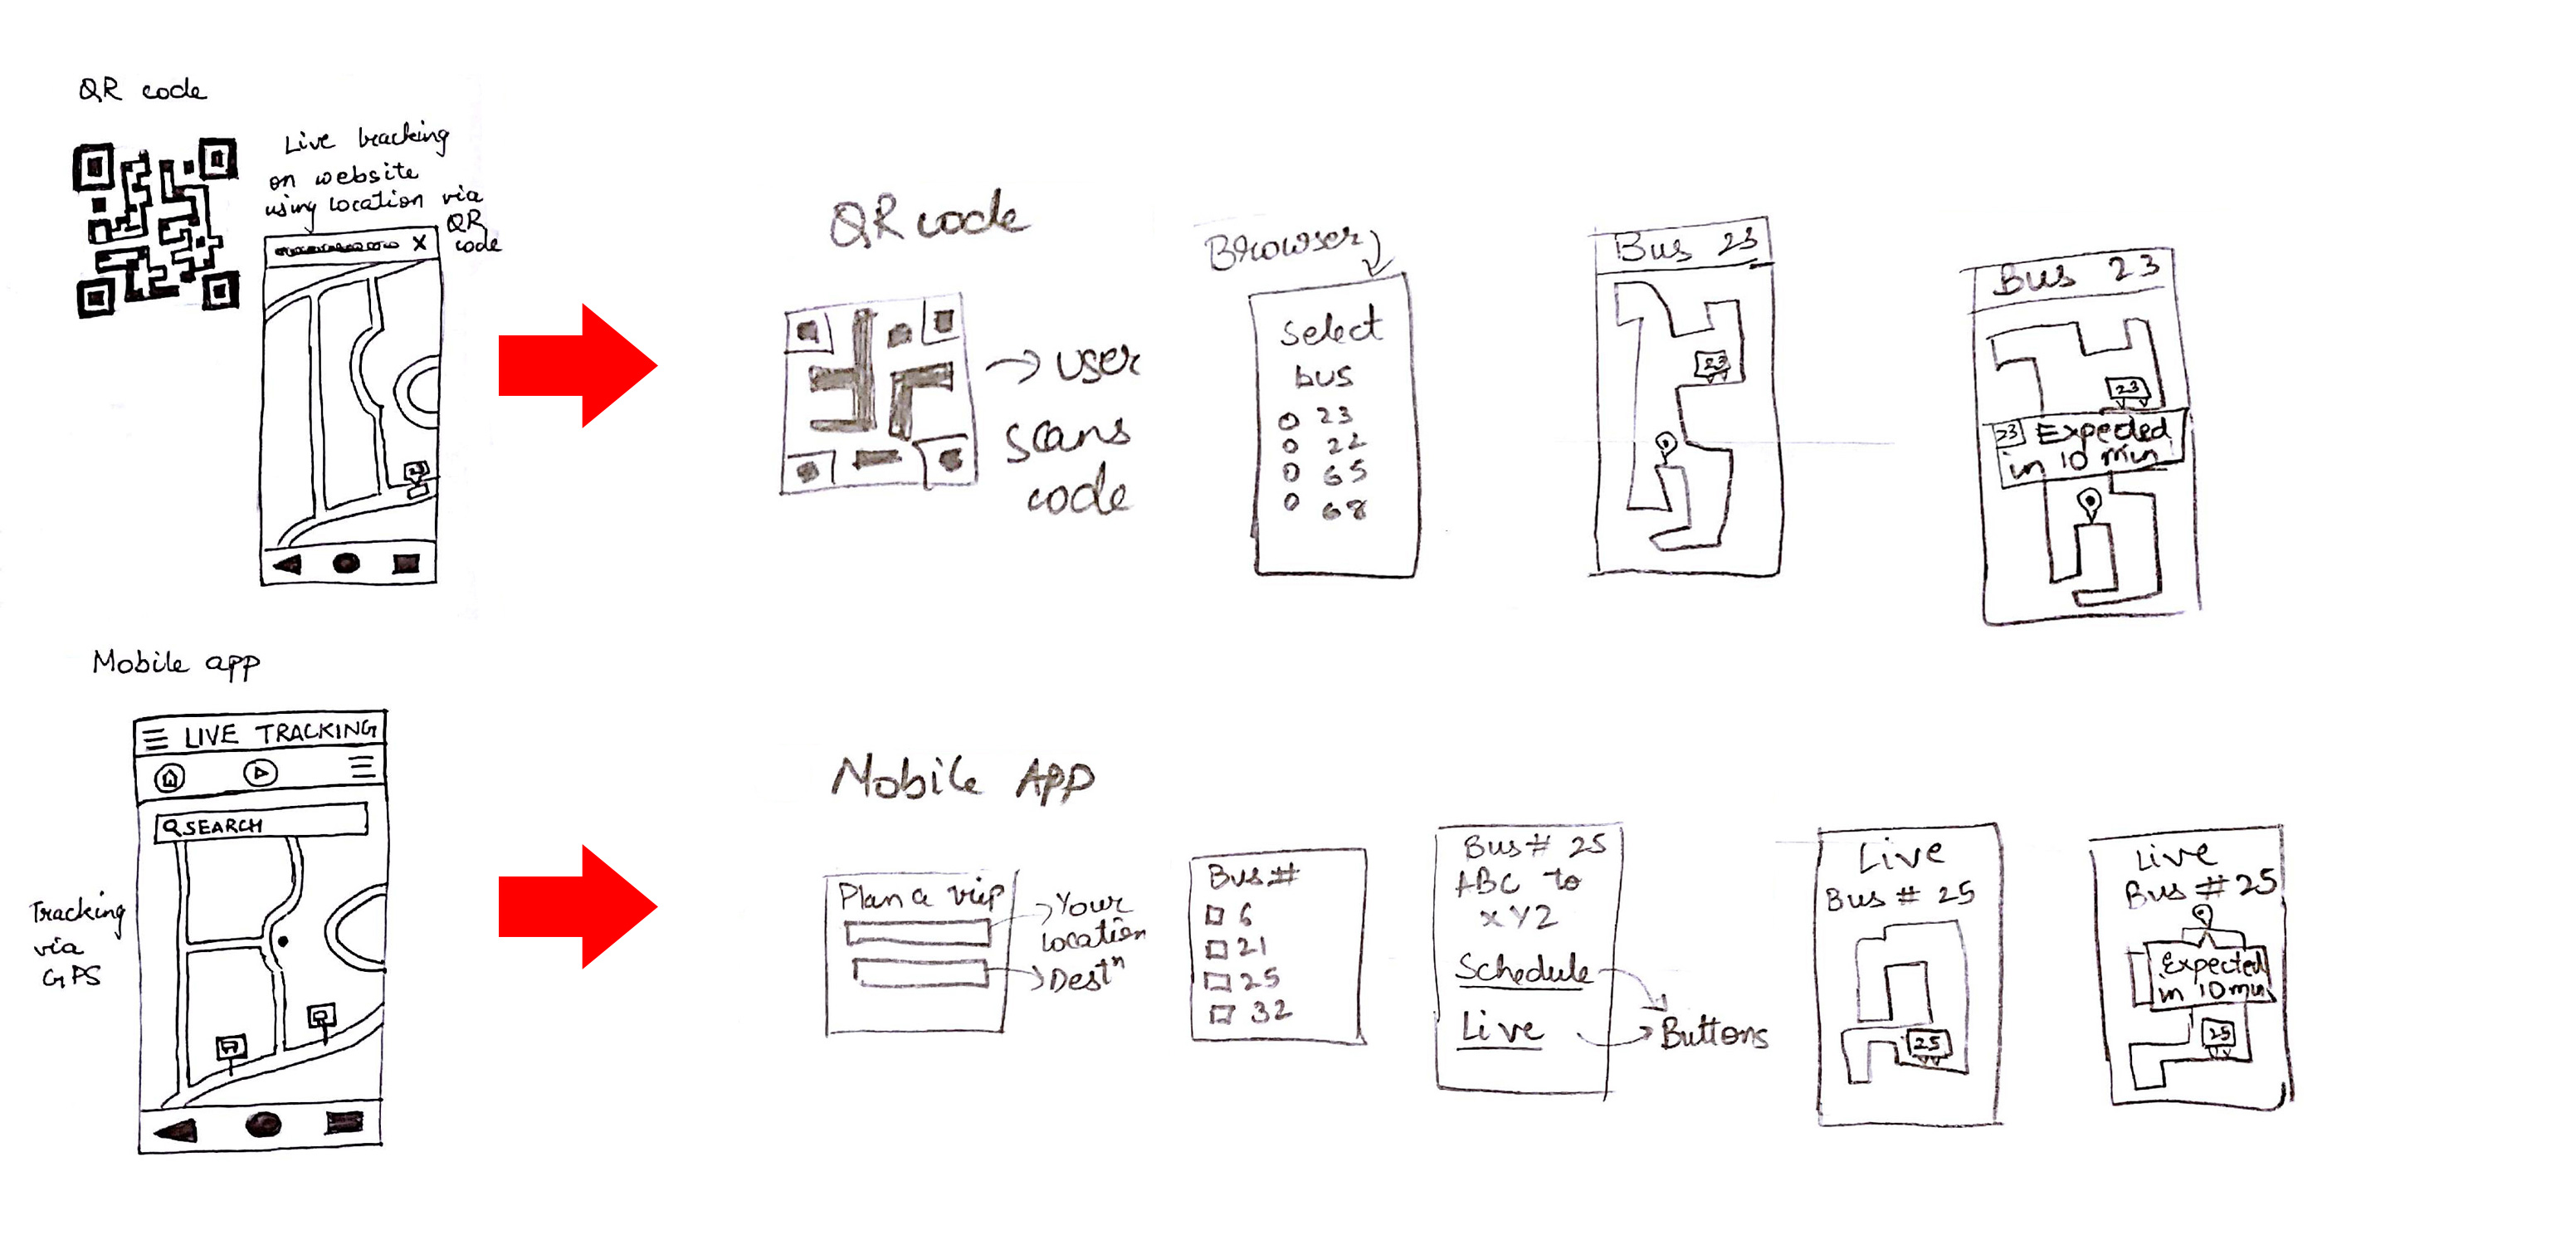 QR code
Live tracking
on website
using location via
QR
code
X
23
QR code
→ user
scans
code
Browser
Select
bus
23
22
65
68
Bus 23
23
Bus 23
23
23 Expected
in 10 min
Mobile app
LIVE TRACKING
SEARCH
Tracking
via
GPS
Mobile App
Plan a trip
Your
location
Destⁿ
Bus #
6
21
25
32
Bus # 25
ABC to
XYZ
Schedule
Live
Buttons
Live
Bus # 25
25
Live
Bus # 25
Expected
in 10 min
25